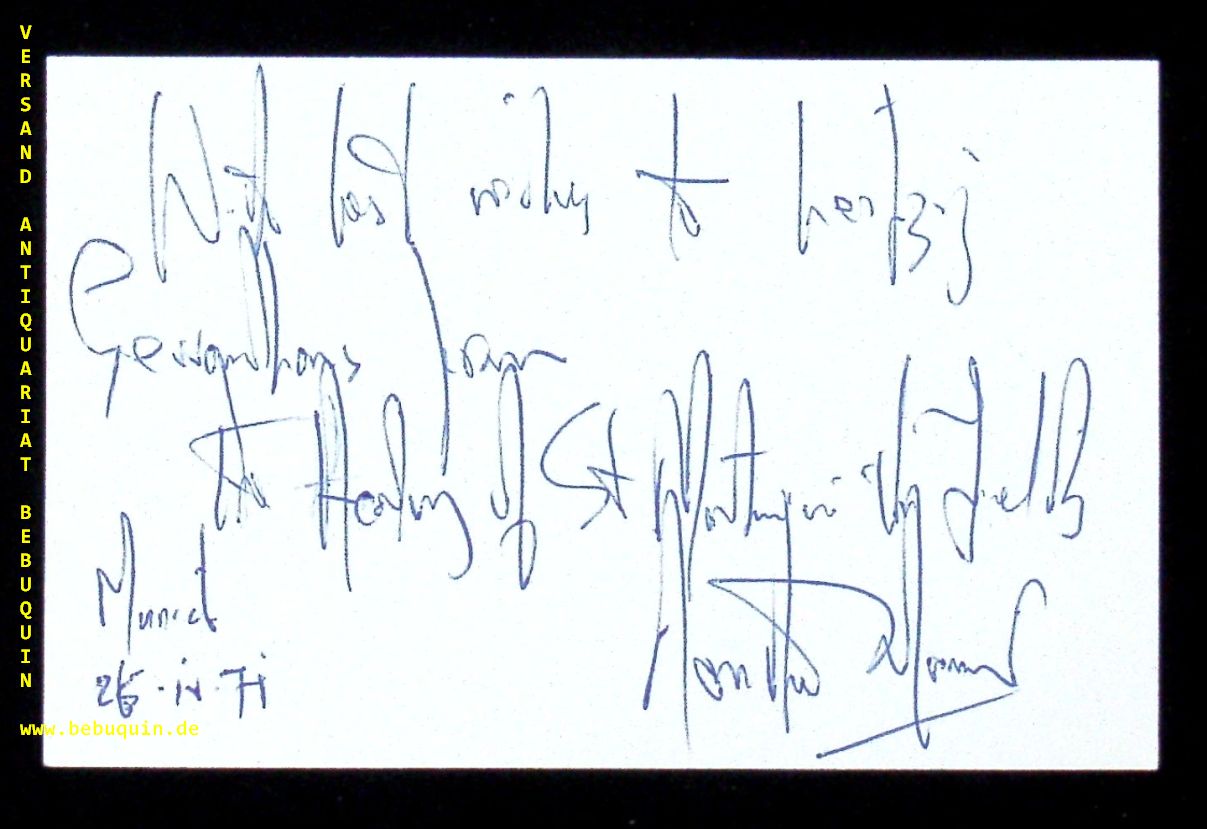 VERSAND ANTIQUARIAT BEBUQUIN
With best wishes to Leipzig
Gewandhaus from
The Academy of St Martin in the Fields
Munich
26.iv.71
www.bebuquin.de